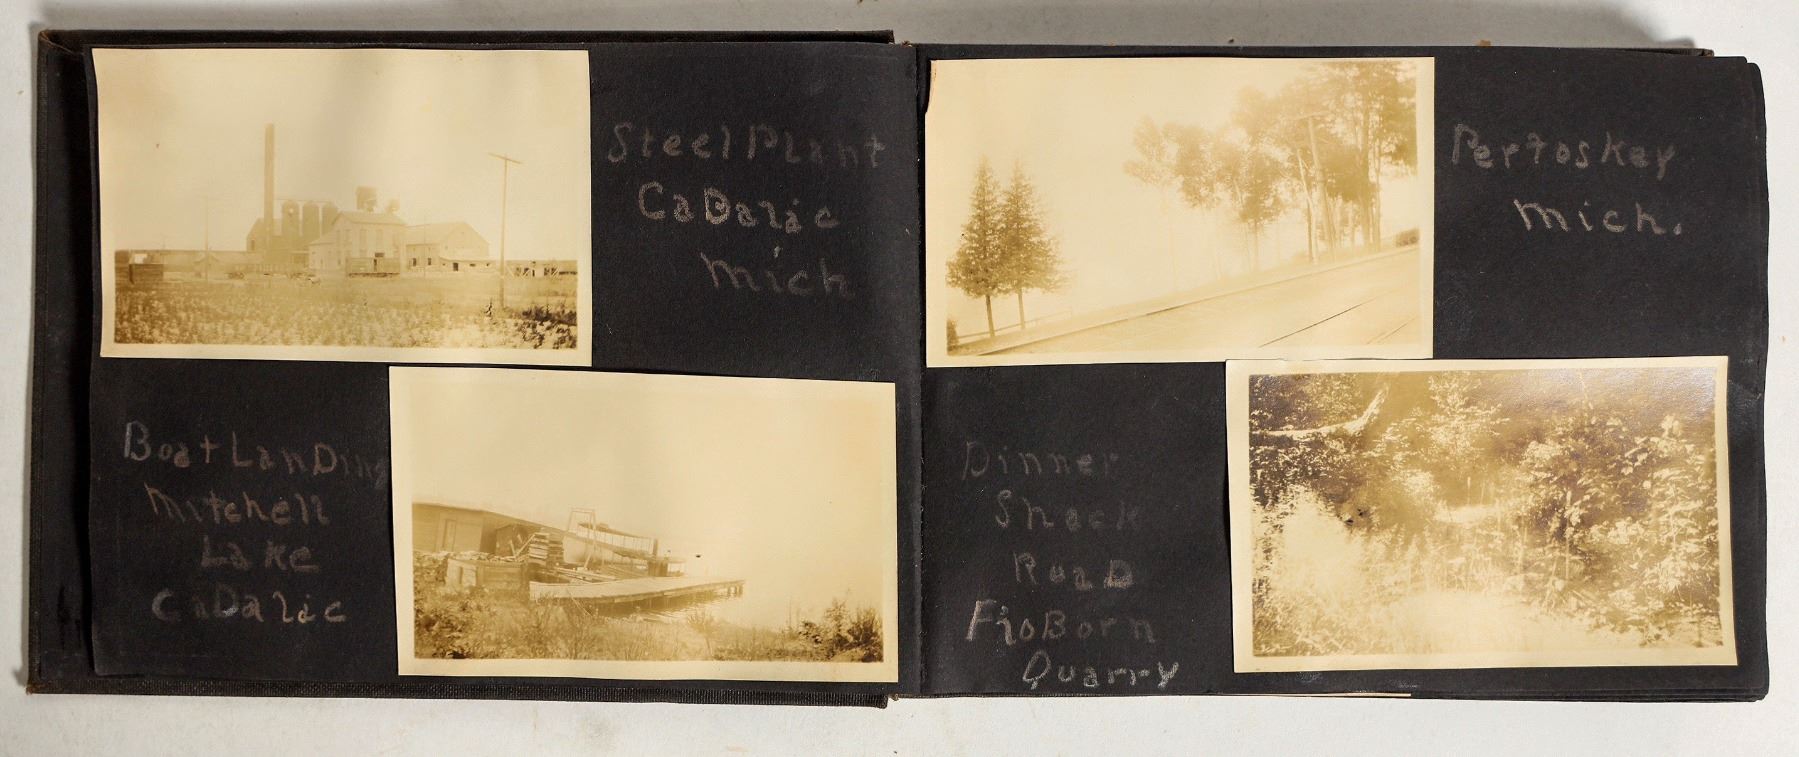 Steel Plant
CaDalic
Mich
Boat LanDing
Mitchell
Lake
CaDalic
Pertoskey
Mich.
Dinner
Shack
RoaD
FioBorn
Quarry